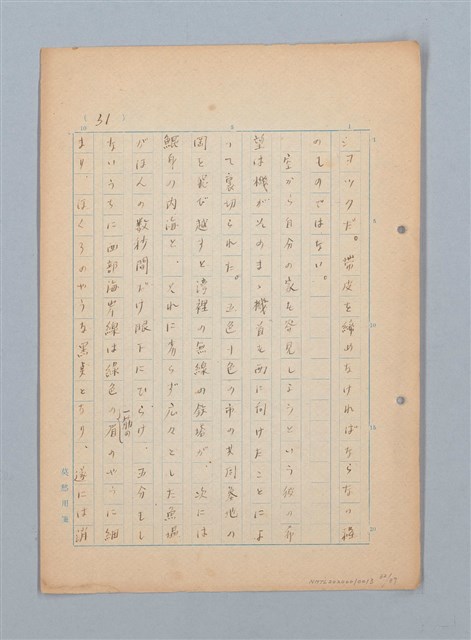 (31)
ヨックだ。帯皮を締めなければならない程
のものではない。
空から自分の家を発見しようといふ彼の希
望は機がそのまゝ機首を西に向けたことによ
って裏切られた。五色十色の市の共同墓地の
岡を飛び越すと湾裡の無線の鉄塔が、次には
鯤身の内海と、それに劣らず広々とした魚塭
がほんの数秒間だけ眼下にひらけ、五分もし
ないうちに西部海岸線は緑色の一筋の眉のやうに細
まり、ほくろのやうな黒点となり、遂には消